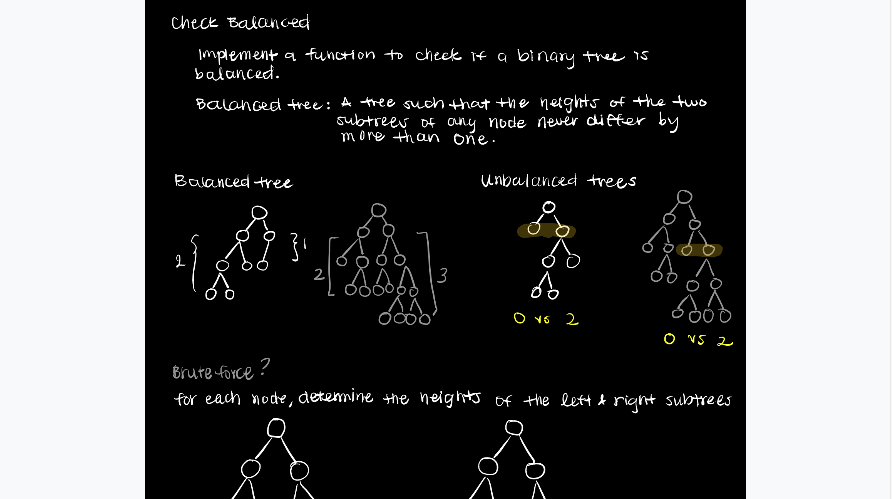 Check Balanced
Implement a function to check if a binary tree is
balanced.
Balanced tree: A tree such that the heights of the two
subtrees of any node never differ by
more than one.
Balanced tree
Unbalanced trees
2
1
2
3
0 vs 2
0 vs 2
Brute force?
for each node, determine the heights of the left & right subtrees